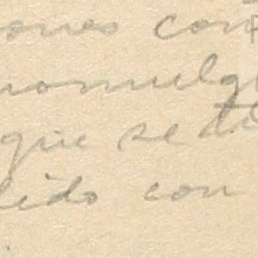 ones con
romulg
que se di
lido con